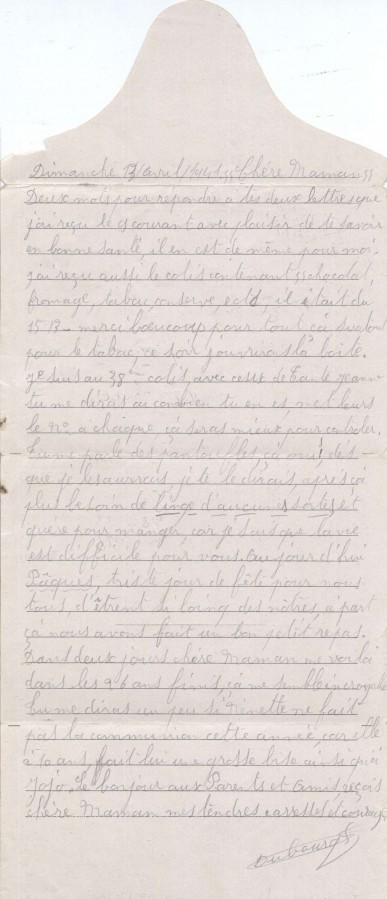 Dimanche 13/avril/1941 "Chère Maman"
Deux mots pour répondre à tes deux lettres que
j'ai reçu le 9 courant avec plaisir de te savoir
en bonne santé, il en est de même pour moi.
j'ai reçu aussi le colis contenant, chocolat,
fromage, tabac, conserve, ect, il était du
15 merci beaucoup pour tout ça surtout
pour le tabac, ce soir j'ouvrirais la boîte.
Je suis au 38 colis, avec ceux de Tante Jeanne
tu me dirais à combien tu en es, met leurs
le No à chaque, ça seras mieux pour controler.
tu me parle des pantoufles, ça oui, dès
que je les aurrais, je te le dirais, après ça
plus besoin de linge d'aucunes sortes, et
guère pour manger, car je sais que la vie
est difficile pour vous. Aujourd'hui
Pâques, tris te jour de fête pour nous
tous, d'êtrent si loing des nôtres, à part
ça nous avons fait un bon petit repas.
Dans deux jours chère Maman me voilà
dans les 26 ans finis, ça me semble incroyable
tu me diras un peu si Ginette ne fait
pas la communion cette année, car elle
à 10 ans, fait lui une grosse bise ainsi qu'à
Jojo. Le bonjour aux Parents et Amis reçois
chère Maman mes tendres carresses et courage
Dubourg